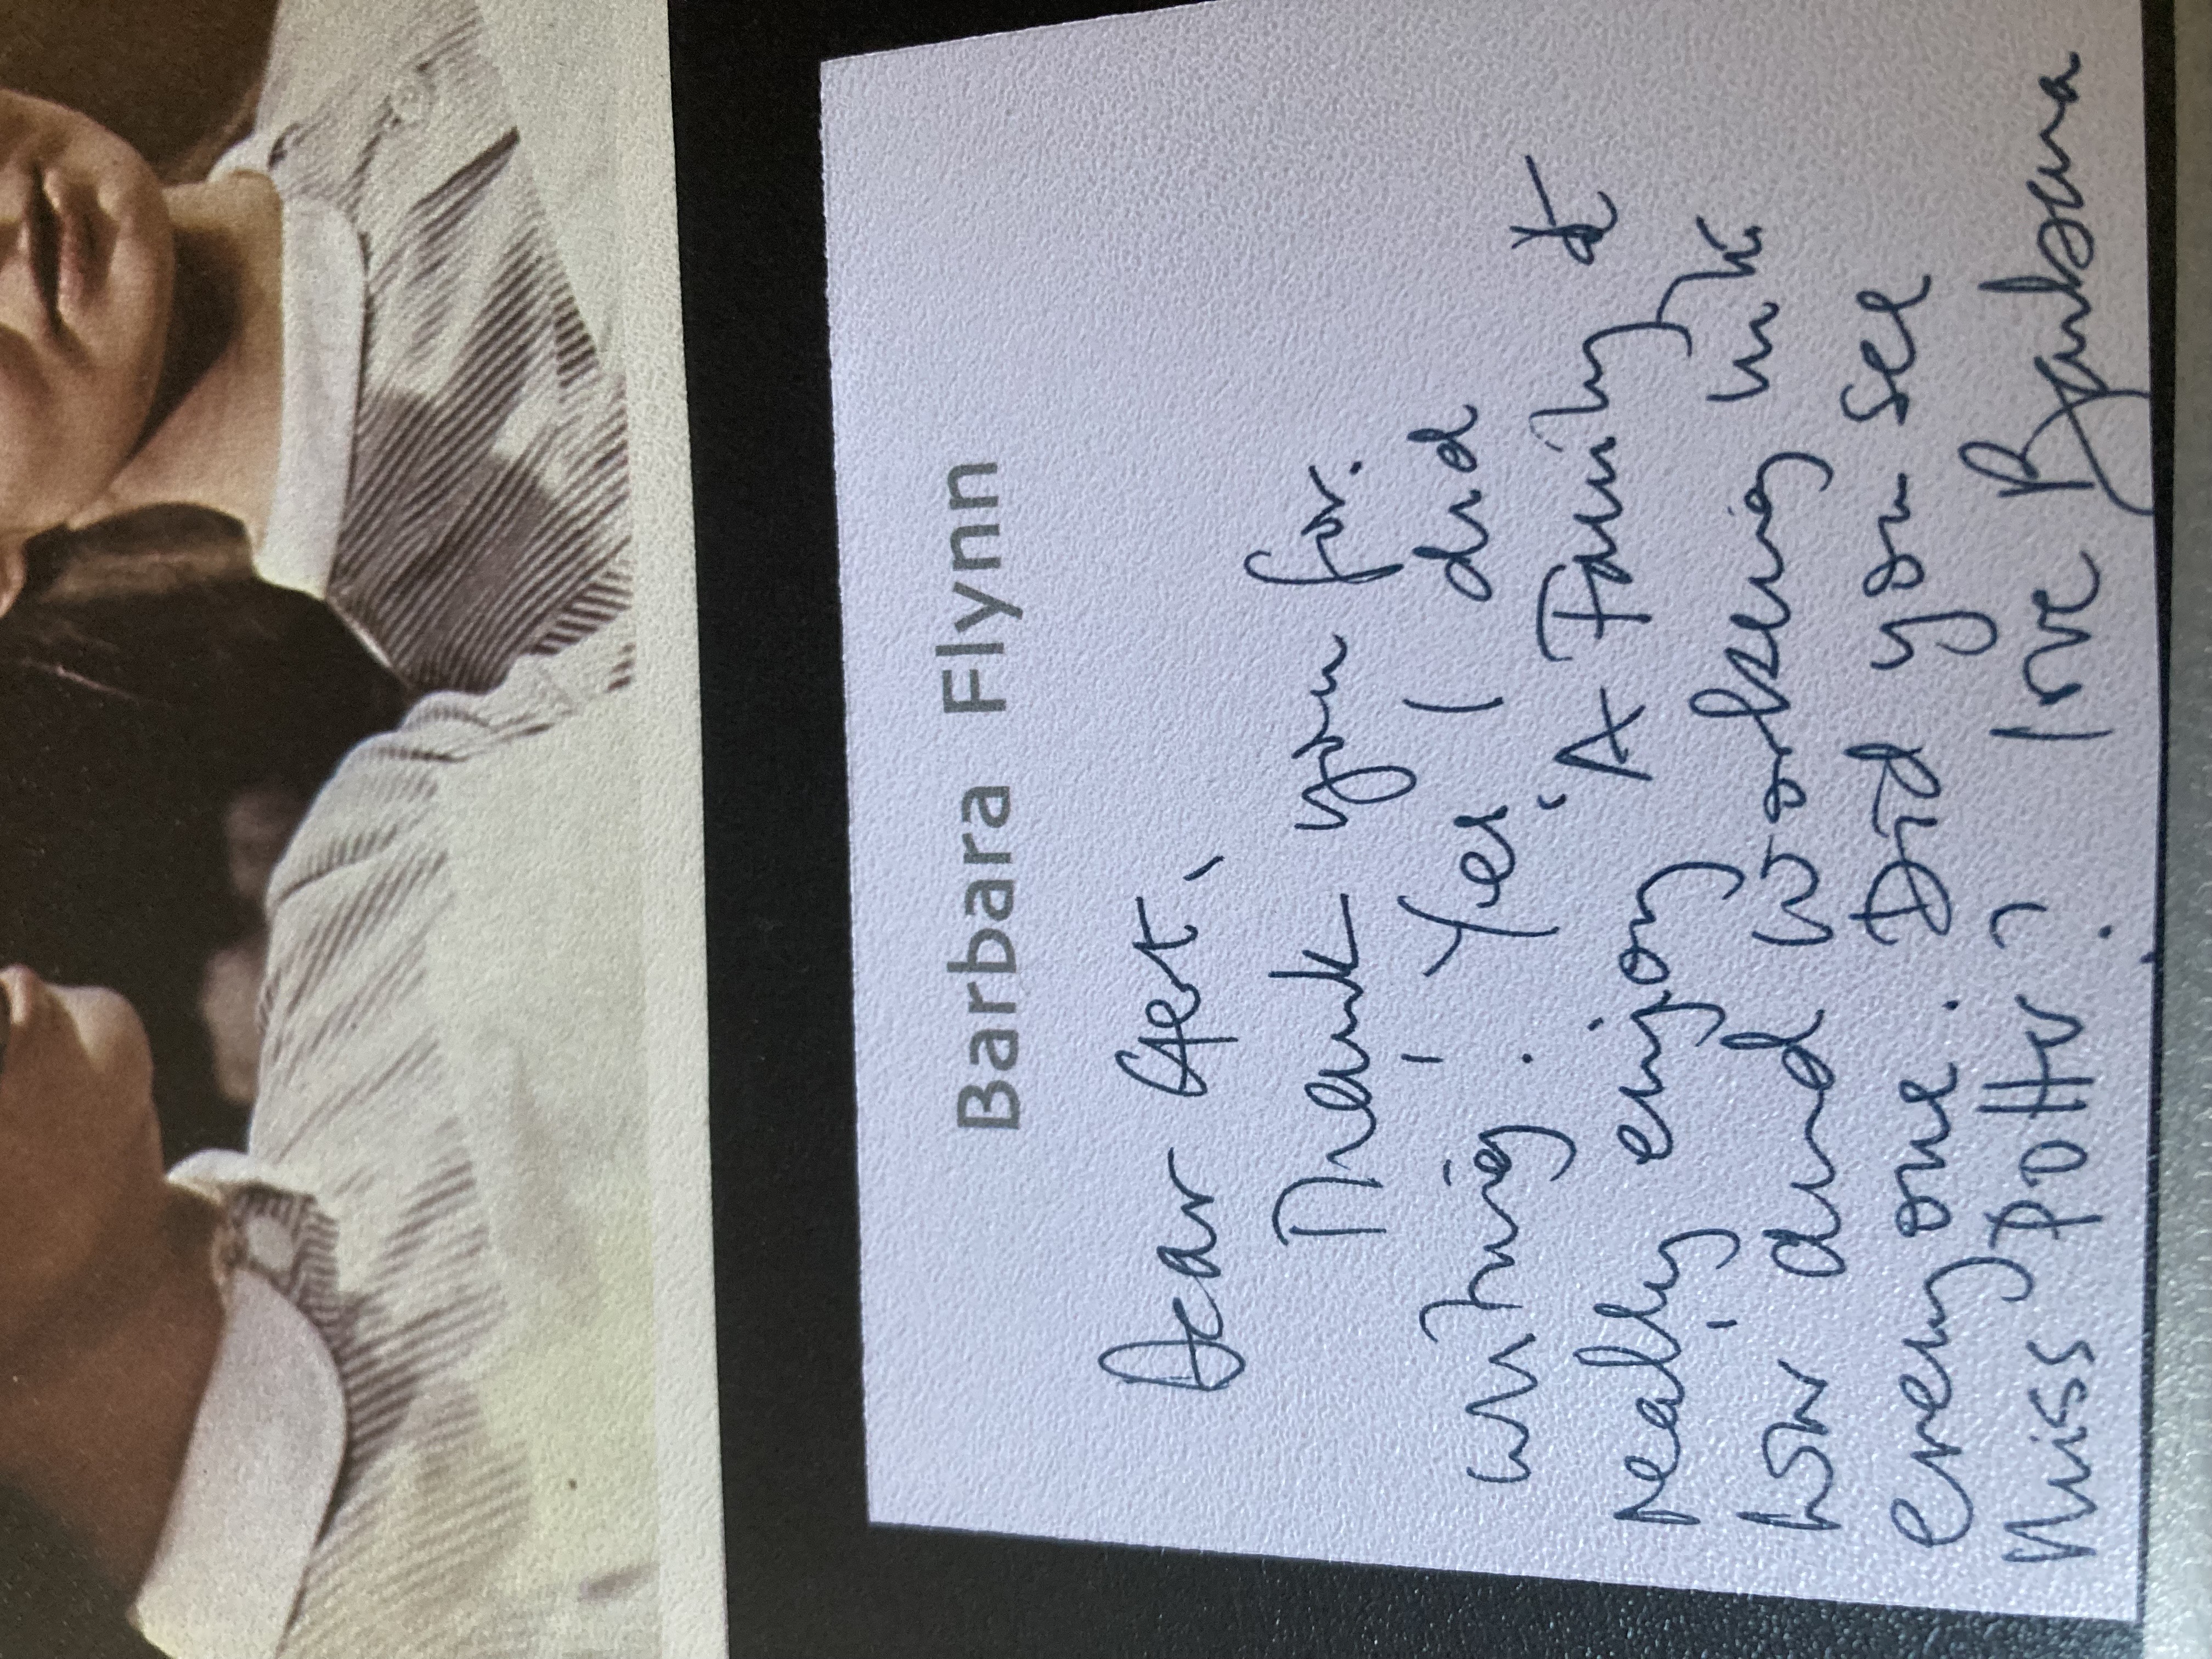 Barbara Flynn
Dear Gert,
Thank you for
writing. Yes I did
really enjoy 'A Family at
War' and working with
everyone. Did you see
Miss Potter?
love Barbara